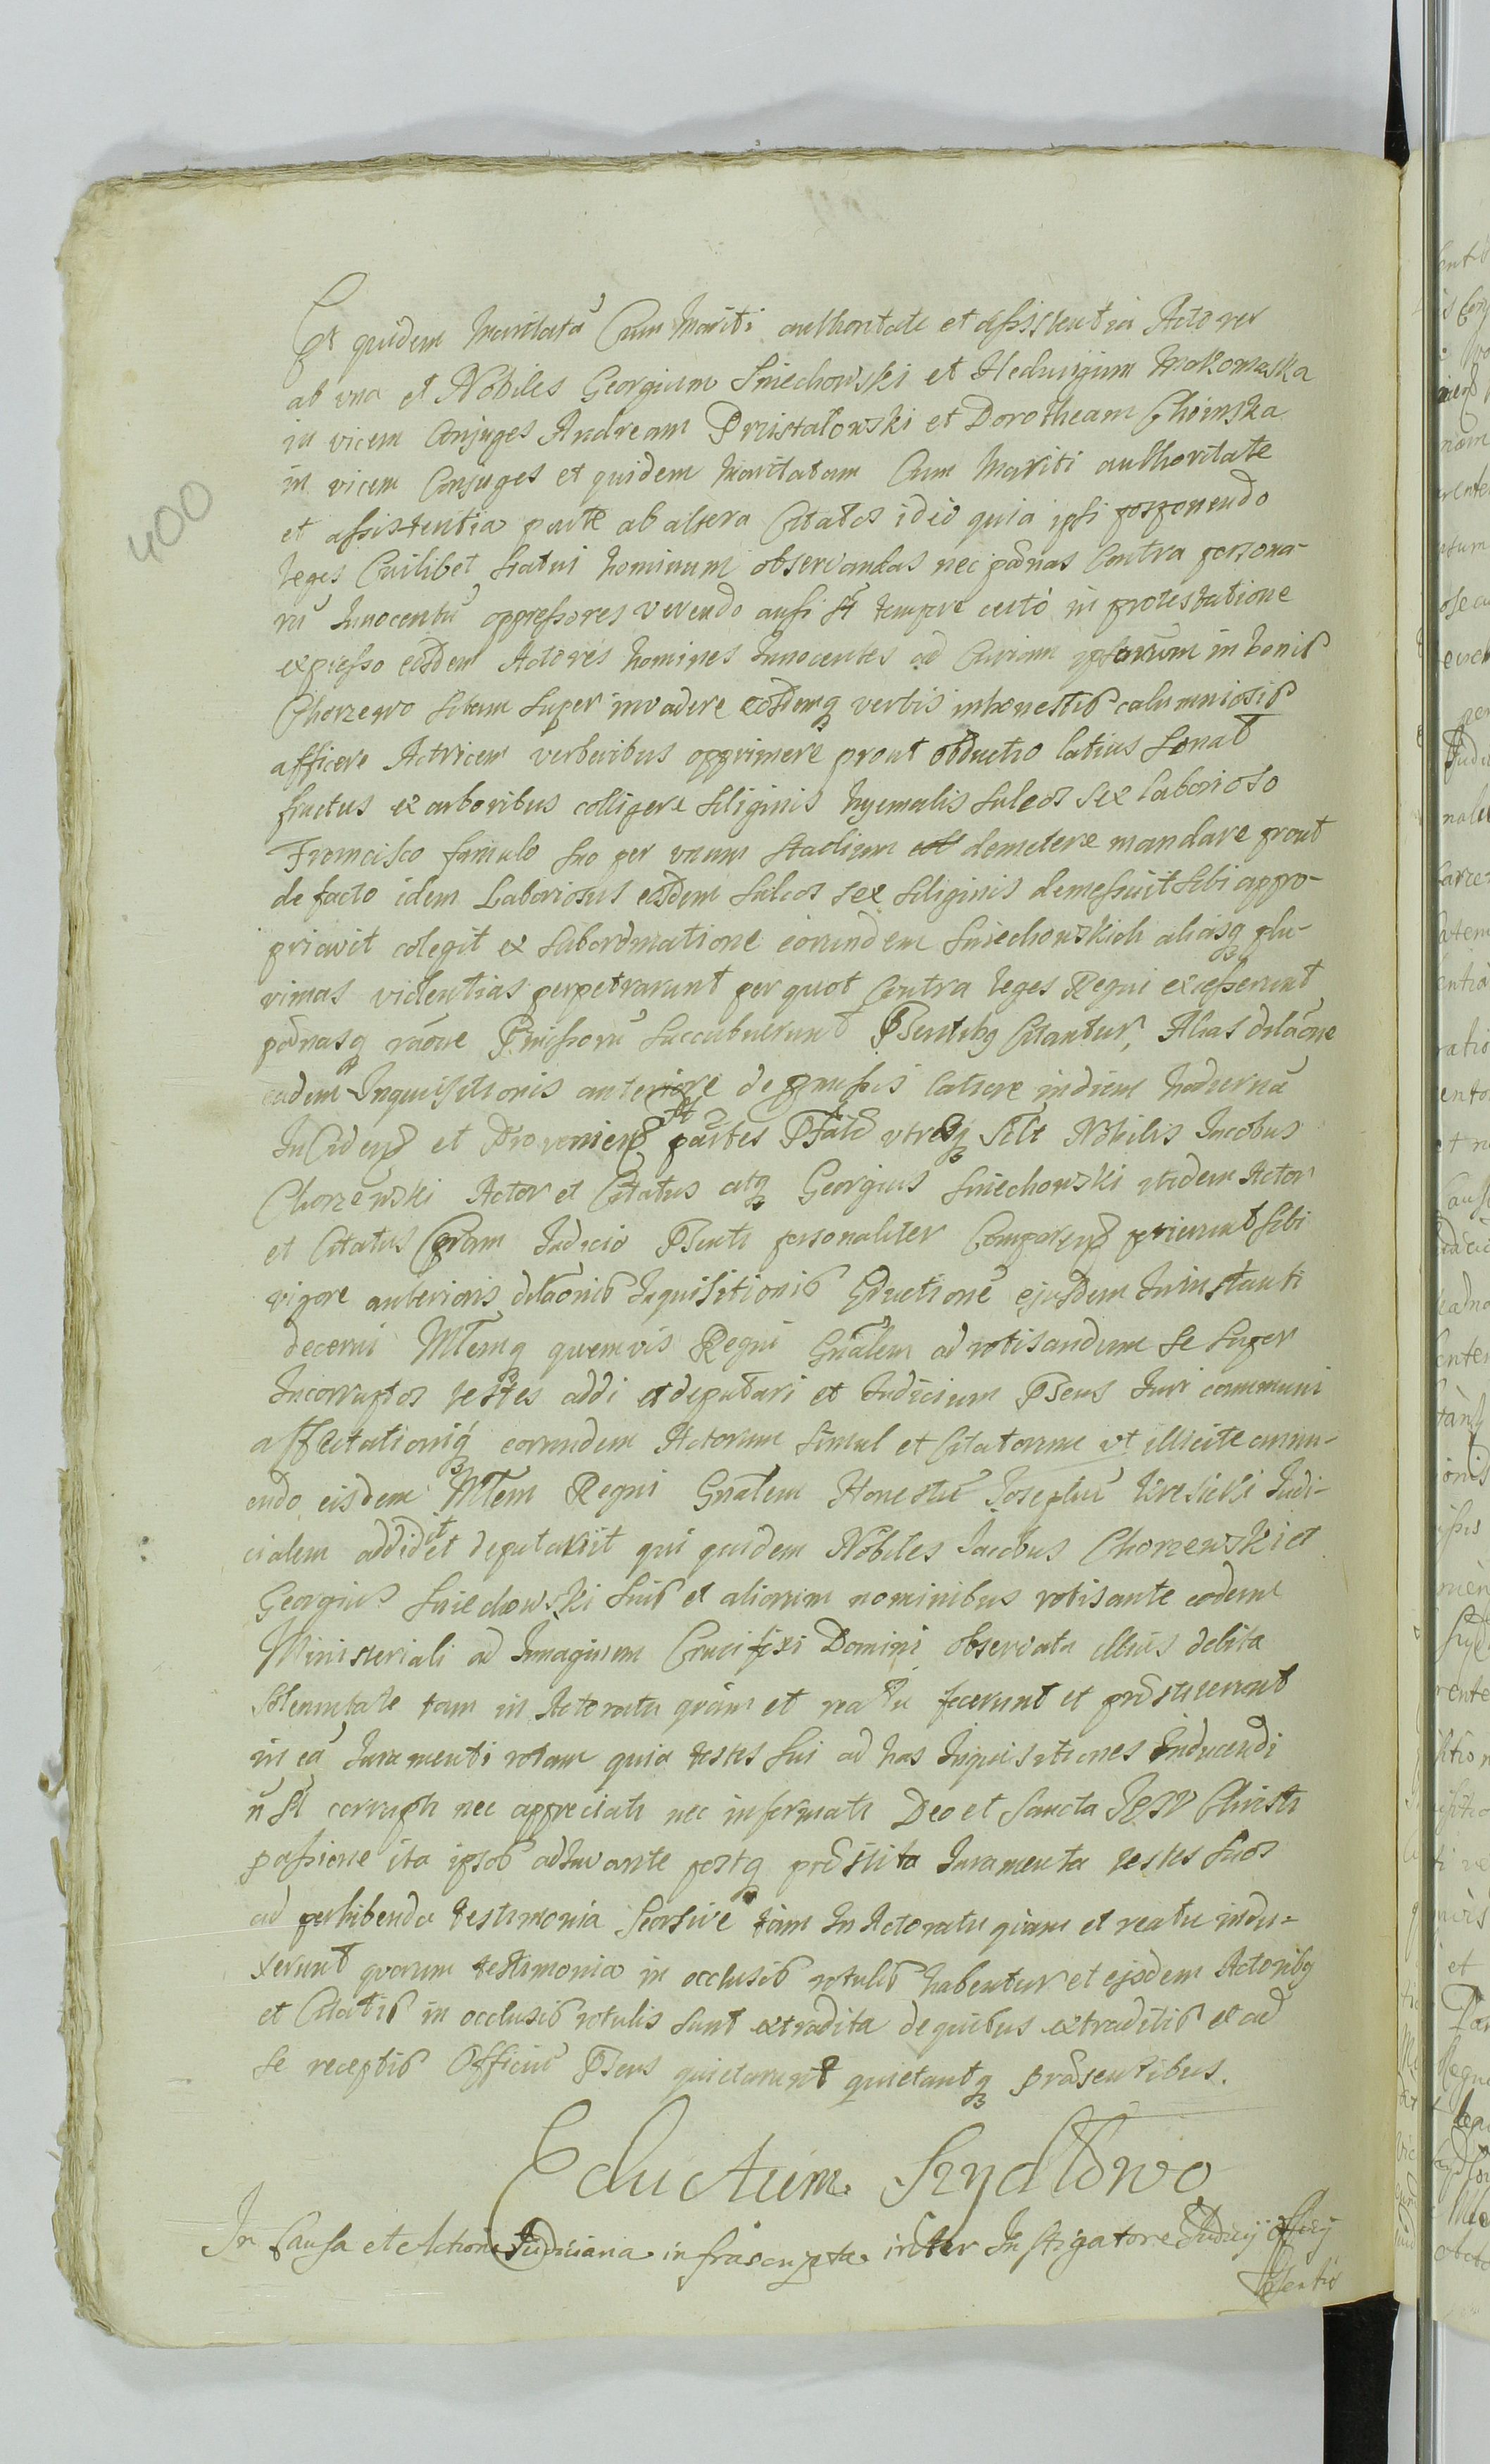 400
Et quidem Maritatã Cum Mariti authoritate et assistentia Actores
ab vna et Nobiles Georgium Sniechowski et Hedvigim Mokomaska
in vicem Conjuges Andream Przistałowski et Dorotheam Choinska
in vicem Conjuges et quidem Maritatam Cum Mariti authoritate
et assistentia parte ab altera Citatos ideo quia ipsi posponendo
leges Cuilibet statui hominum observandas nec pœnas Contra persona-
rũ Innocentũ oppressores verendo ausi st tempore certo in protestatione
expresso eosdem Actores homines Innocentes ad Curiam ipsorum in bonis
Chorzewo sitam super invadere eosdemq verbis inhonestis calumniosis
afficere Actricem verberibus opprimere prout obductio latius sonat
fructus ex arboribus colligere siliginis hyemalis sulcos sex laborioso
Francisco famulo suo per vnum stadium demetere mandare prout
de facto idem Laboriosus eosdem sulcos sex siliginis demessuit sibi appro-
priavit colegit ex subordinatione eorundem Sniechowskich aliasq plu-
rimas violentias perpetrarunt per quot Contra leges Regni excesserunt
pœnasq rãone Prmissorũ succubuerunt Psentibq Citantur, Alias dilãone
eadem Inquisitionis anteriore de pmissis latiore in diem hodiernã
Incidens et Proveniens partes Pfatæ vtræq scilt Nobilis Jacobus
Chorzewski Actor et Citatus atq Georgius Sniechowski itidem Actor
et Citatus Coram Judicio Psenti personaliter Comparens petierunt sibi
vigore anterioris dilãonis Inquisitionis Eductionẽ ejusdem in instanti
decerni MTemq quemvis Regni Gnãlem ad rotisandum se super
Incorruptos testes addi et deputari et Judicium Psens Juri communi
affectationiq eorundem Actorum simul et Citatorum vt illicite annu-
endo eisdem MTem Regni Gnãlem Honestũ Josephũ Kresicki Judi-
cialem addidit et deputavit qui quidem Nobiles Jacobus Chorzewski et
Georgius Sniechowski suis et aliorum nominibus rotisante eodem
Ministeriali ad Imaginem Crucifixi Domini observata illius debita
Solennitate tam in Actoratu quam et reatu fecerunt et præstiterunt
in eã Juramenti rotam quia testes sui ad has Inquisitiones Inducendi
ñ st corrupti nec appreciati nec informati Deo et Sancta Jesv Christi
passione ita ipsos adIuvante postq præstita Juramenta testes suos
ad perhibenda testimonia seorsive tam In Actoratu quam et reatu indu-
xerunt quorum testimonia in occlusis rotulis habentur et ejsdem Actoribq
et Citatis in occlusis rotulis sunt extradita de quibus extraditis et ad
se receptis Officiũ Psens quietarunt quietantq præsentibus.
Eductum. Szydłowo
In Causa et Actione Judiciaria infrascripta inter Instigatorẽ Judicij Officij
Psentis